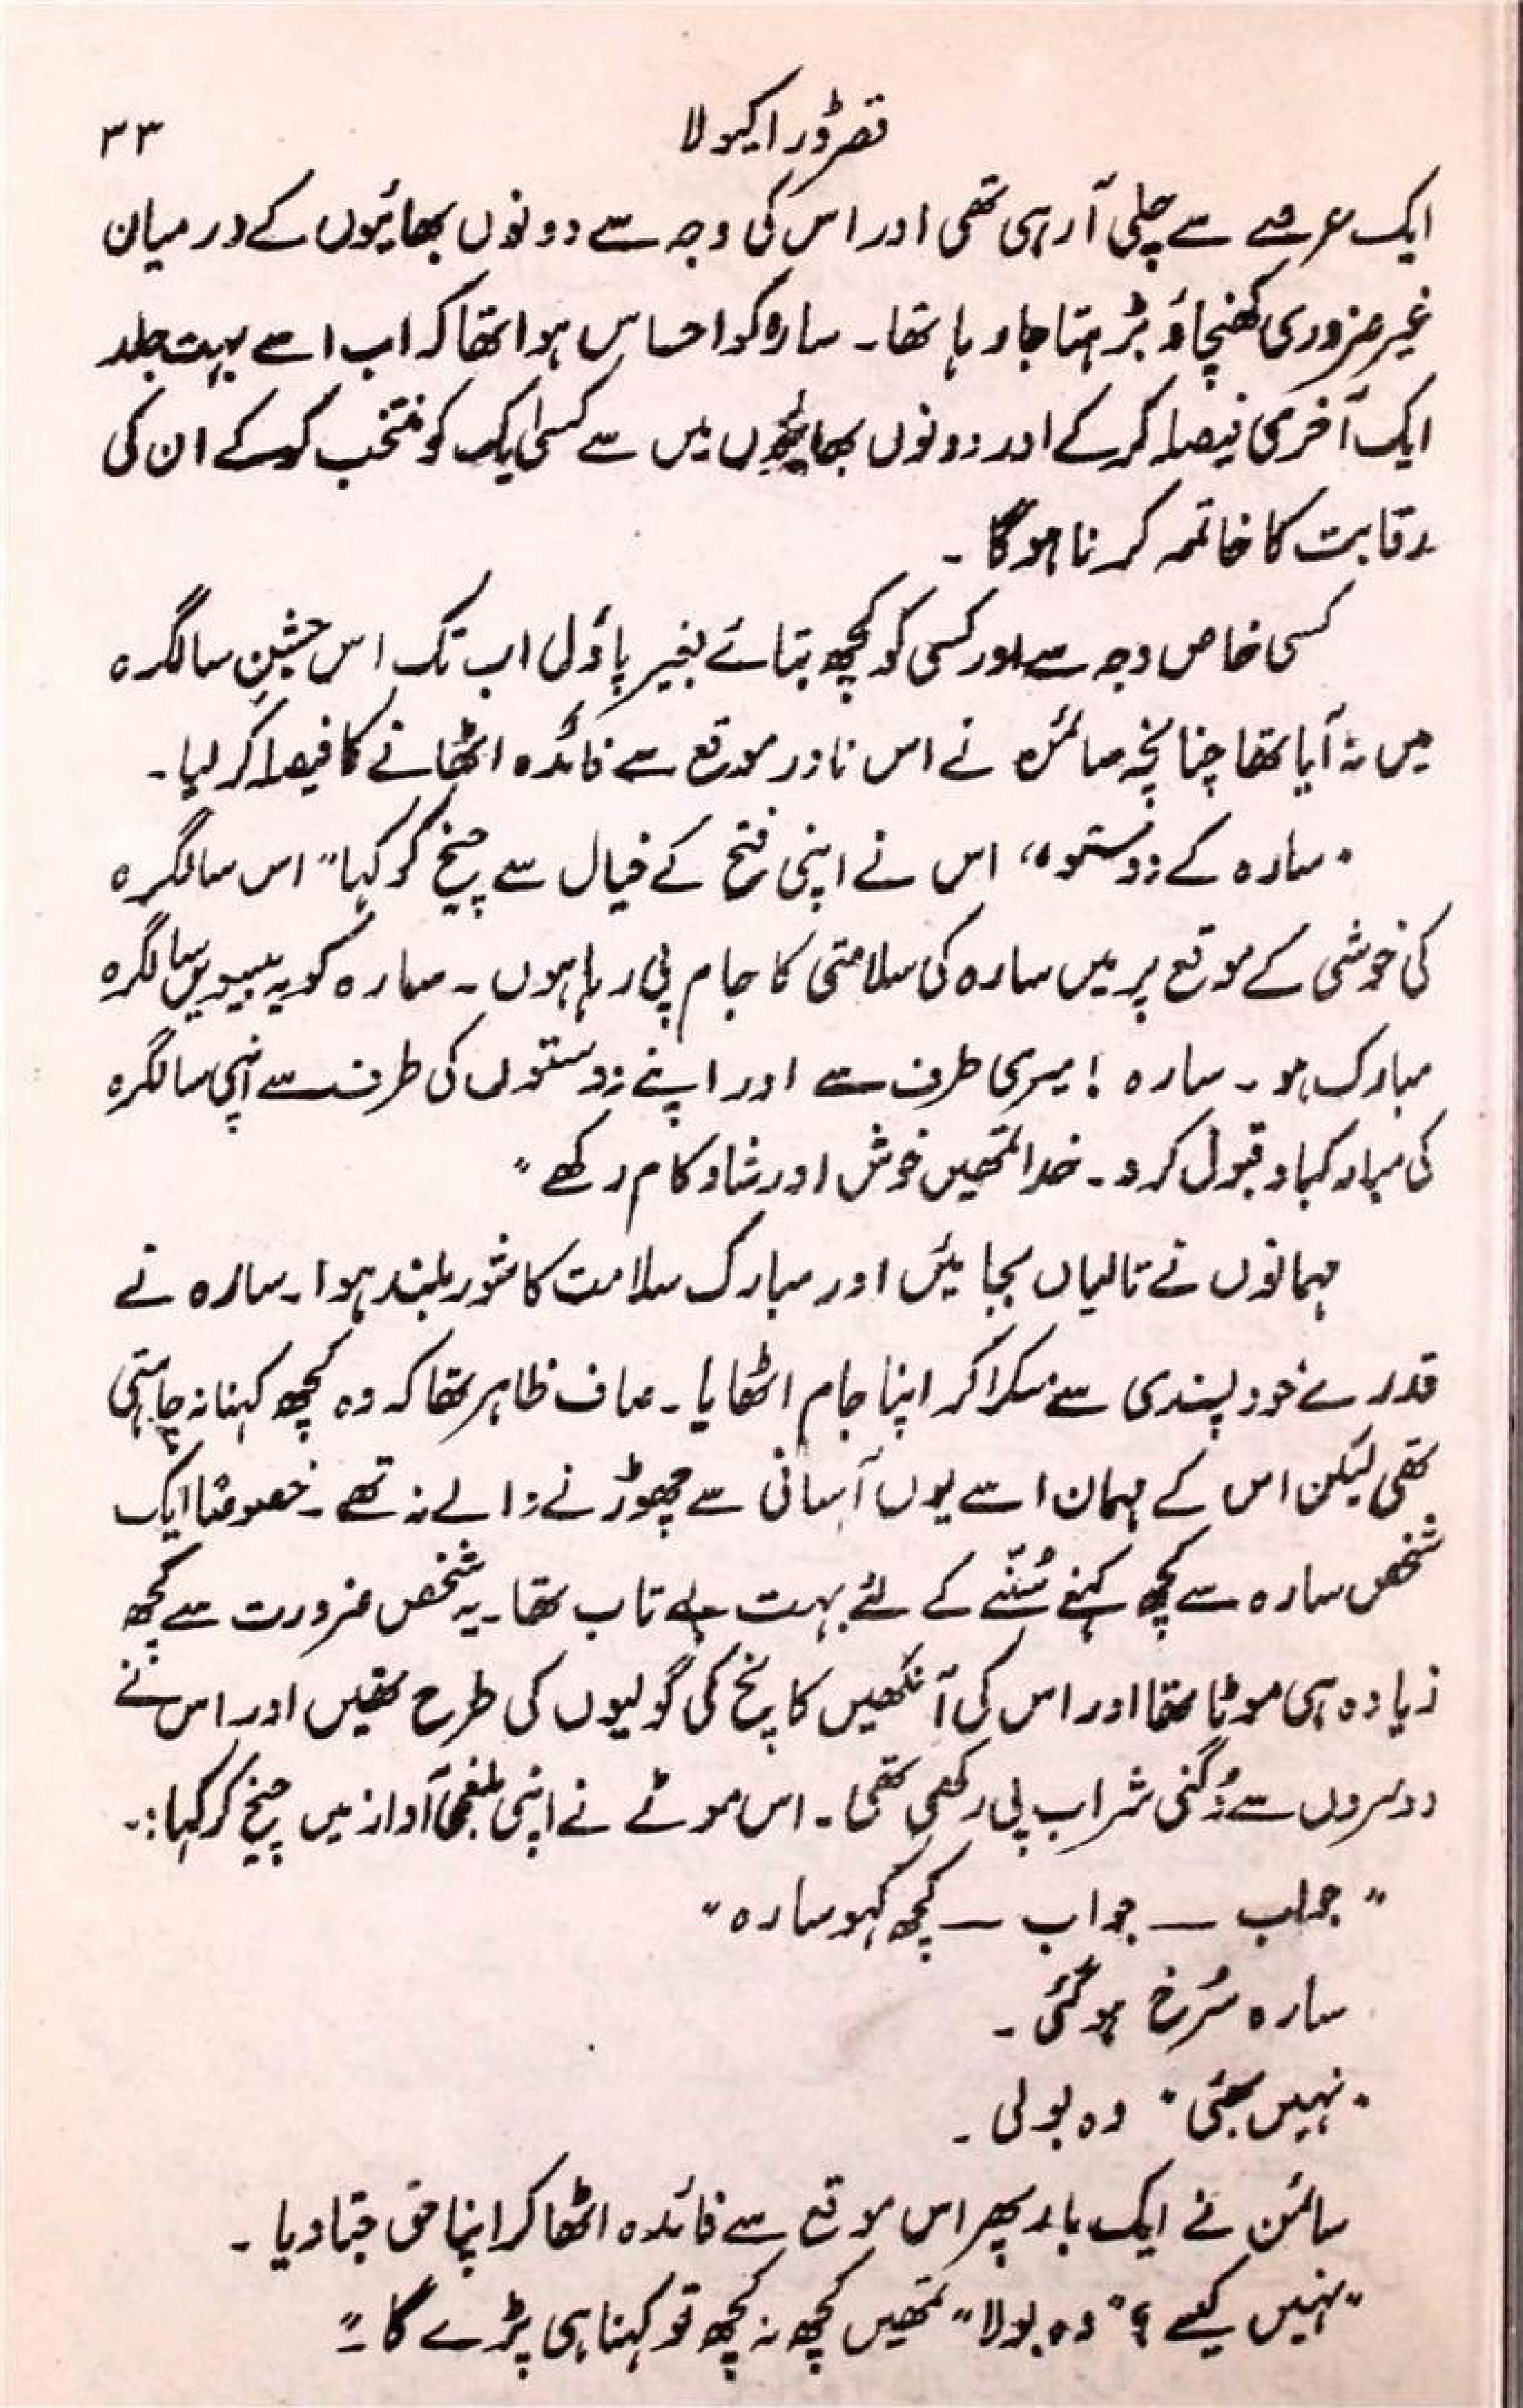 قصر ڈراکیولا ۳۳
ایک عرصے سے چلی آرہی تھی اور اس کی وجہ سے دونوں بھائیوں کے درمیان
غیر ضروری کھنچاؤ بڑھتا جارہا تھا۔ سارہ کو احساس ہوا تھا کہ اب اسے بہت جلد
ایک آخری فیصلہ کرکے اور دونوں بھائیوں میں سے کسی ایک کو منتخب کرکے ان کی
رقابت کا خاتمہ کرنا ہوگا۔
کسی خاص وجہ سے اور کسی کو کچھ بتائے بغیر پاؤل اب تک اس جشنِ سالگرہ
میں نہ آیا تھا چنانچہ سائمن نے اس نادر موقع سے فائدہ اٹھانے کا فیصلہ کرلیا۔
"سارہ کے دوستو" اس نے اپنی فتح کے خیال سے چیخ کر کہا "اس سالگرہ
کی خوشی کے موقع پر میں سارہ کی سلامتی کا جام پی رہا ہوں۔ سارہ کو یہ بیسیویں سالگرہ
مبارک ہو۔ سارہ! میری طرف سے اور اپنے دوستوں کی طرف سے اپنی سالگرہ
کی مبارکباد قبول کرو۔ خدا تمھیں خوش اور شاد کام رکھے"
مہمانوں نے تالیاں بجائیں اور مبارک سلامت کا شور بلند ہوا۔ سارہ نے
قدرے خود پسندی سے مسکرا کر اپنا جام اٹھایا۔ صاف ظاہر تھا کہ وہ کچھ کہنا نہ چاہتی
تھی لیکن اس کے مہمان اسے یوں آسانی سے چھوڑنے والے نہ تھے۔ خصوصًا ایک
شخص سارہ سے کچھ کہنے سُننے کے لئے بہت بے تاب تھا۔ یہ شخص ضرورت سے کچھ
زیادہ ہی موٹا تھا اور اس کی آنکھیں کانچ کی گولیوں کی طرح تھیں اور اس نے
دوسروں سے دُگنی شراب پی رکھی تھی۔ اس موٹے نے اپنی بلغمی آواز میں چیخ کر کہا:۔
"جواب — جواب — کچھ کہو سارہ"
سارہ سُرخ ہوگئی۔
"نہیں بھئی" وہ بولی۔
سائمن نے ایک بار پھر اس موقع سے فائدہ اٹھا کر اپنا حق جتا دیا۔
"نہیں کیسے؟" وہ بولا "تمھیں کچھ نہ کچھ تو کہنا ہی پڑے گا۔"